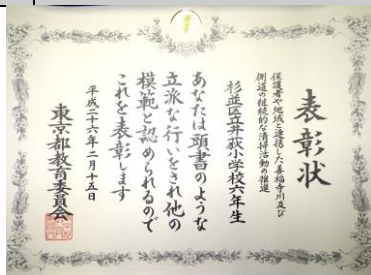 表彰状
保護者や地域と連携した善福寺川及び
側道の継続的な清掃活動の推進
杉並区立井荻小学校六年生
あなたは頭書のような
立派な行いをされ他の
模範と認められるので
これを表彰します
平成二十六年二月十五日
東京都教育委員会